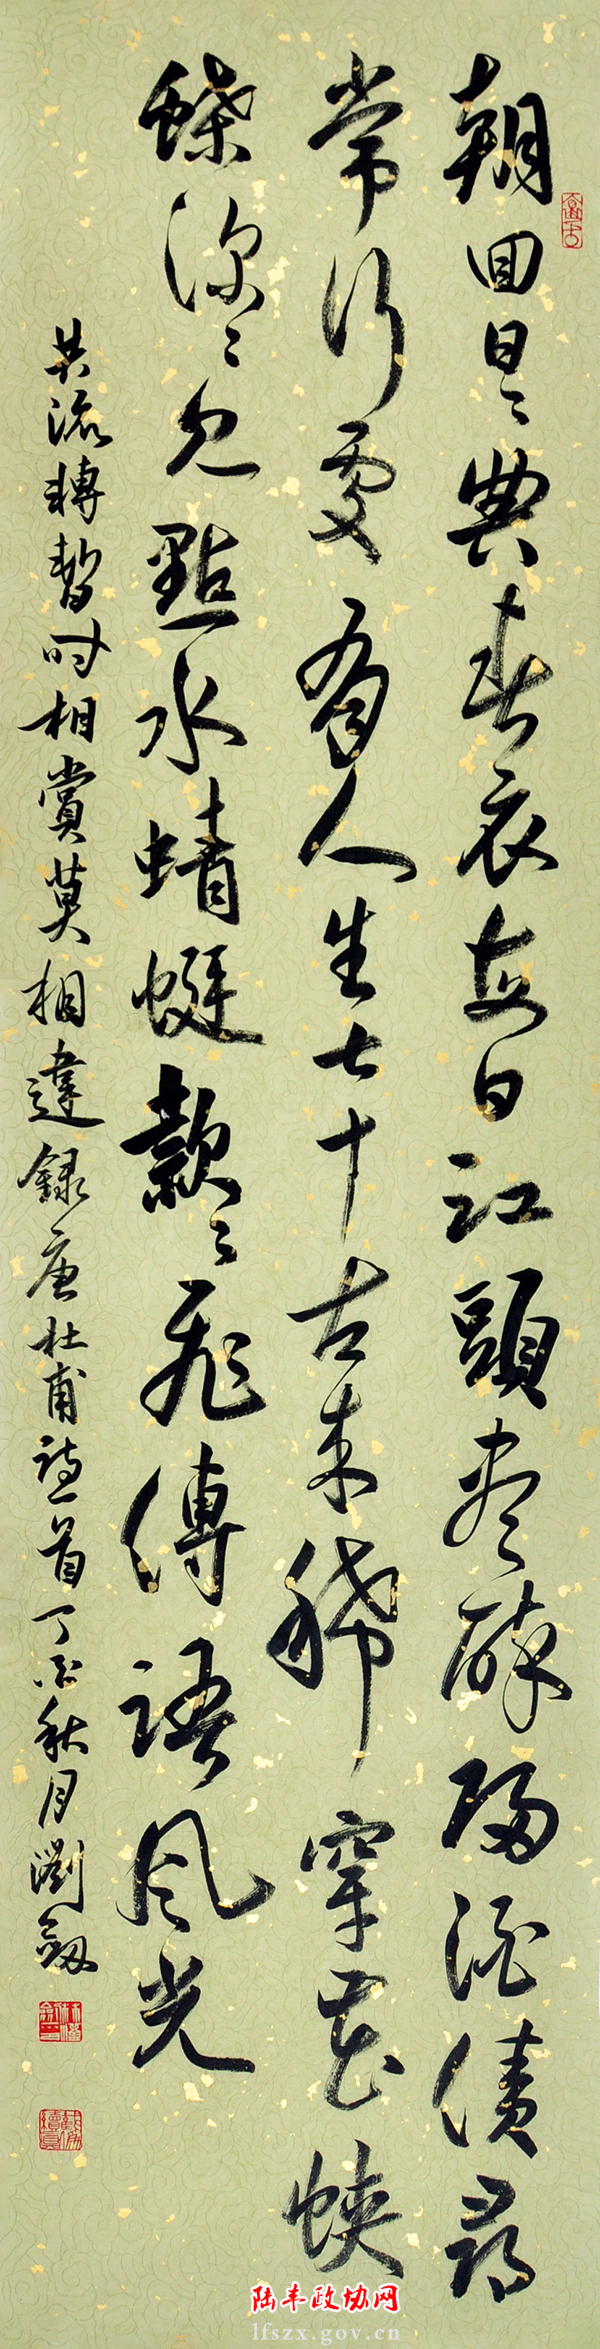 朝回日々典春衣每日江頭盡醉歸酒債尋
常行處有人生七十古來稀穿花蛺
蝶深々見點水蜻蜓款々飛傳語風光
共流轉暫時相賞莫相違錄唐杜甫詩一首丁酉秋月瀏劔
陆丰政协网
lfszx.gov.cn